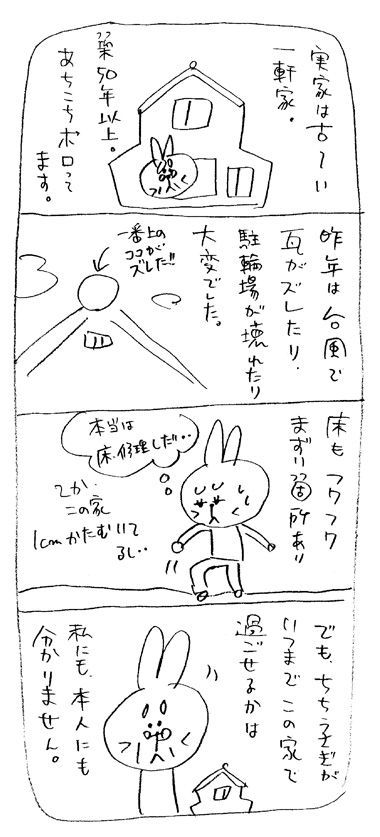 実家は古〜い
一軒家。
築50年以上。
あちこちボロって
ます。
昨年は台風で
瓦がズレたり、
駐輪場が壊れたり
大変でした。
一番上の
ココが
ズレた!!
床もフワフワ
まずい箇所あり
本当は
床、修理しだ…
てか、
この家
1cmかたむいて
るし…
でも、ちちうさぎが
いつまでこの家で
過ごせるかは
私にも、本人にも
分かりません。